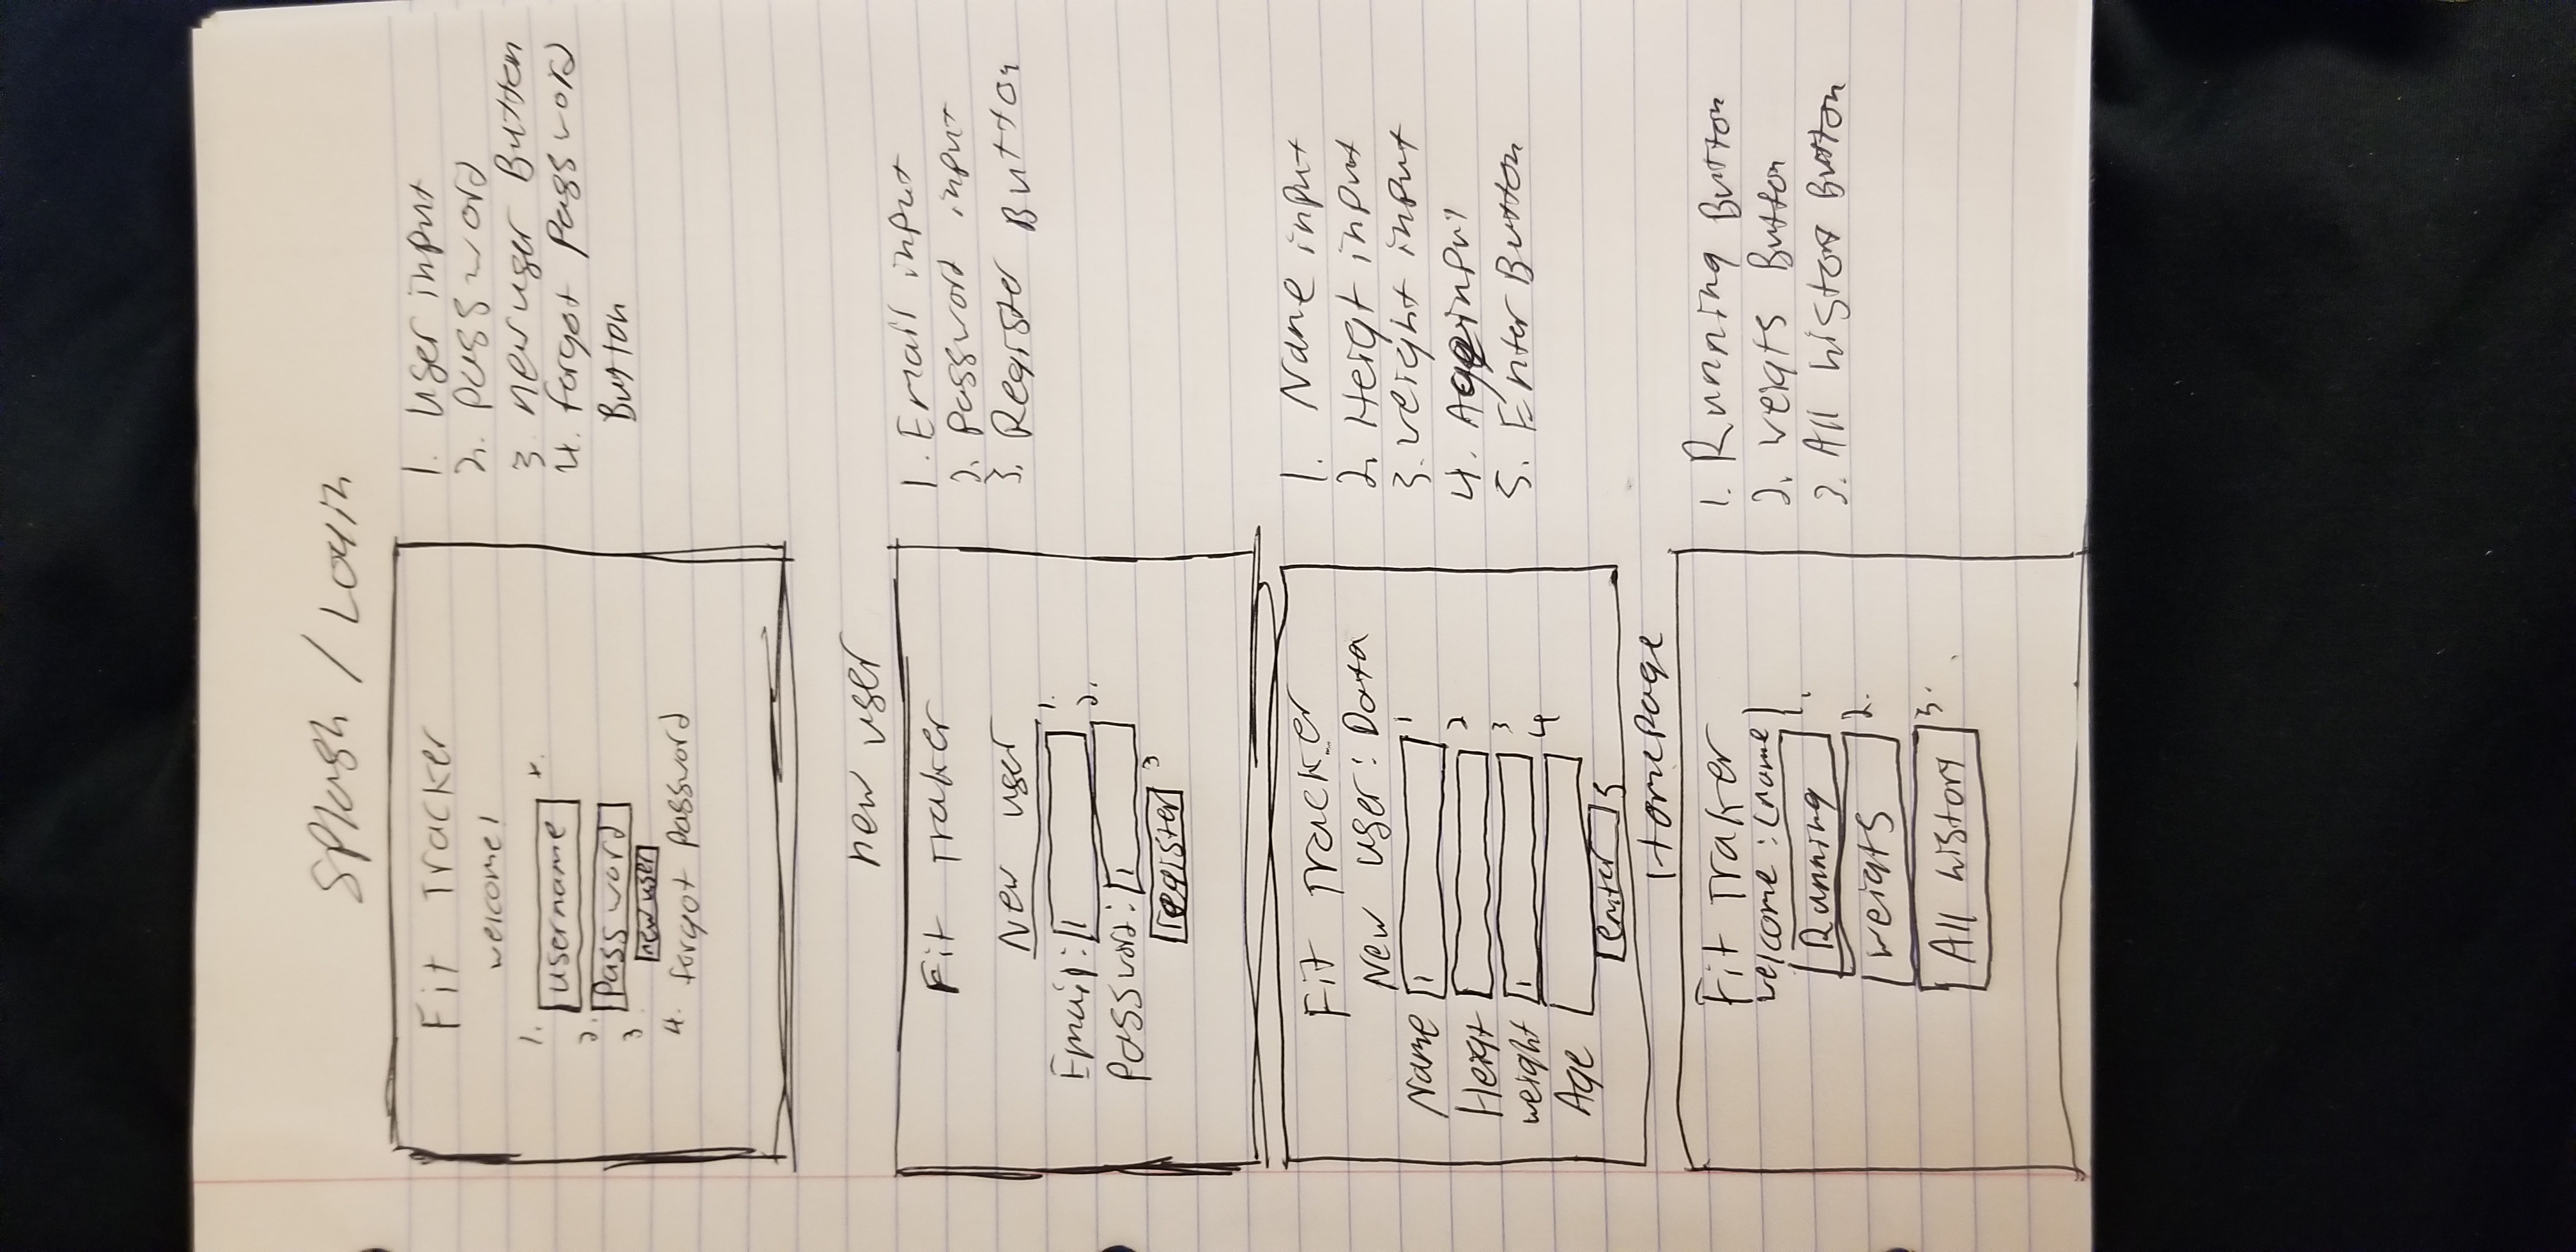 Splash / Login
Fit Tracker
welcome!
1.
username
2.
Password
3
new user
4. forgot password
1. User input
2. password
3 new user Button
4. forgot password
Button
new user
Fit Traker
New user
Email: 1.
Password: 2.
register 3
1. Email input
2. password input
3. Register Button
Fit Tracker
New user: Data
Name 1
Heigt 2
weight 3
Age 4
enter 5
1. Name input
2. Heigt input
3. weight input
4. Age input
5. Enter Button
Homepage
Fit Traker
welcome: (name)
Running 1.
weigts 2.
All history 3.
1. Running Button
2. weigts Button
3. All history Button